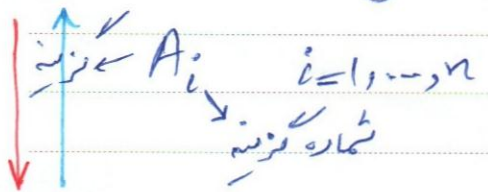 گزینه ← Aᵢ i=1,...,n
شماره گزینه